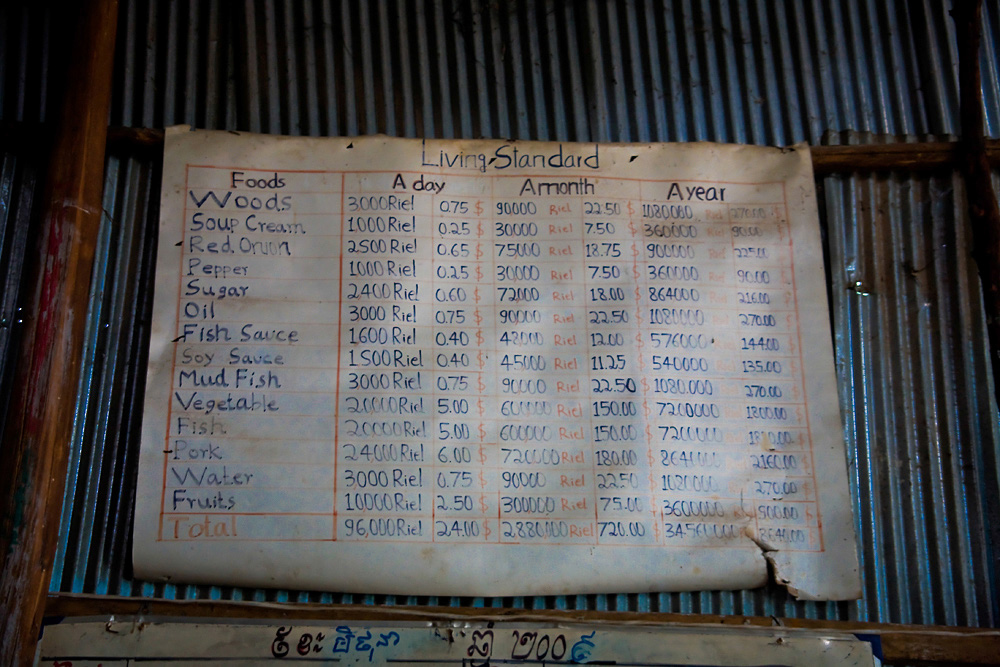 Living Standard
Foods A day A month A year
Woods 3000 Riel 0.75 $ 90000 Riel 22.50 $ 1080000 Riel 270.00 $
Soup Cream 1000 Riel 0.25 $ 30000 Riel 7.50 $ 360000 Riel 90.00
Red. Onion 2500 Riel 0.65 $ 75000 Riel 18.75 $ 900000 Riel 225.00
Pepper 1000 Riel 0.25 $ 30000 Riel 7.50 $ 360000 Riel 90.00
Sugar 2400 Riel 0.60 $ 72000 Riel 18.00 $ 864000 Riel 216.00
Oil 3000 Riel 0.75 $ 90000 Riel 22.50 $ 1080000 Riel 270.00
Fish Sauce 1600 Riel 0.40 $ 48000 Riel 12.00 $ 576000 144.00
Soy Sauce 1500 Riel 0.40 $ 45000 Riel 11.25 $ 540000 135.00
Mud Fish 3000 Riel 0.75 $ 90000 Riel 22.50 $ 1080.000 270.00
Vegetable 20000 Riel 5.00 $ 600000 Riel 150.00 $ 7200000 1800.00
Fish 20000 Riel 5.00 $ 600000 Riel 150.00 $ 7200000
Pork 24000 Riel 6.00 $ 720000 Riel 180.00 $ 8640000 2160.00
Water 3000 Riel 0.75 $ 90000 Riel 22.50 $ 1080000 270.00
Fruits 10000 Riel 2.50 $ 300000 Riel 75.00 $ 3600000 900.00
Total 96,000 Riel 24.00 $ 2880.000 Riel 720.00 $ 34.560000 8640.00
ឆ្នាំ ២០០៩